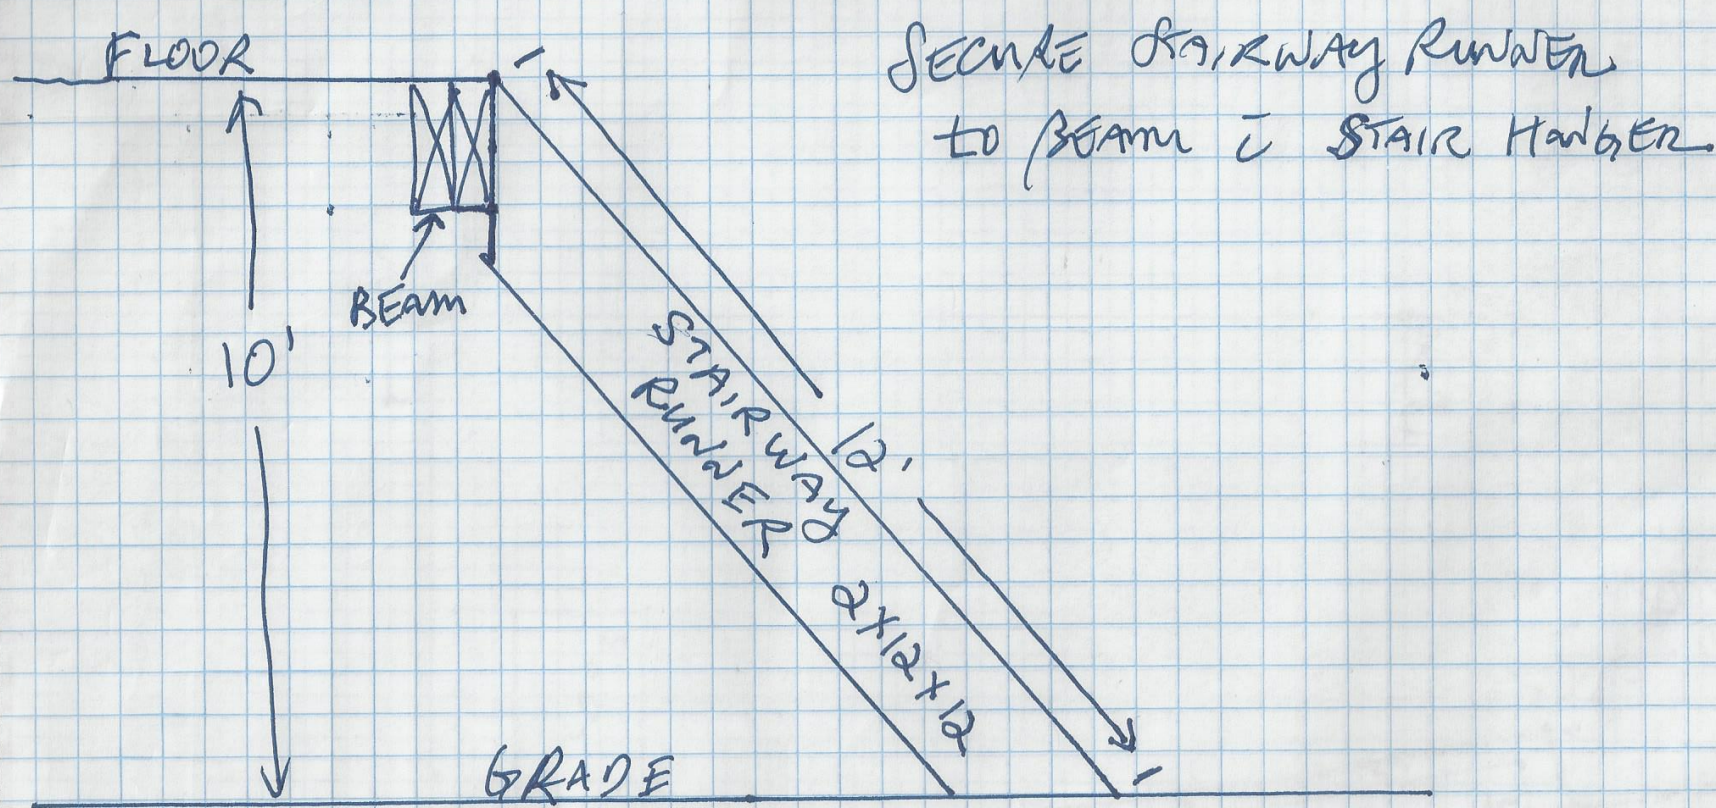 FLOOR
SECURE STAIRWAY RUNNER
to BEAM c̄ STAIR HANGER
BEAM
10'
STAIRWAY
RUNNER
12'
2X12X12
GRADE